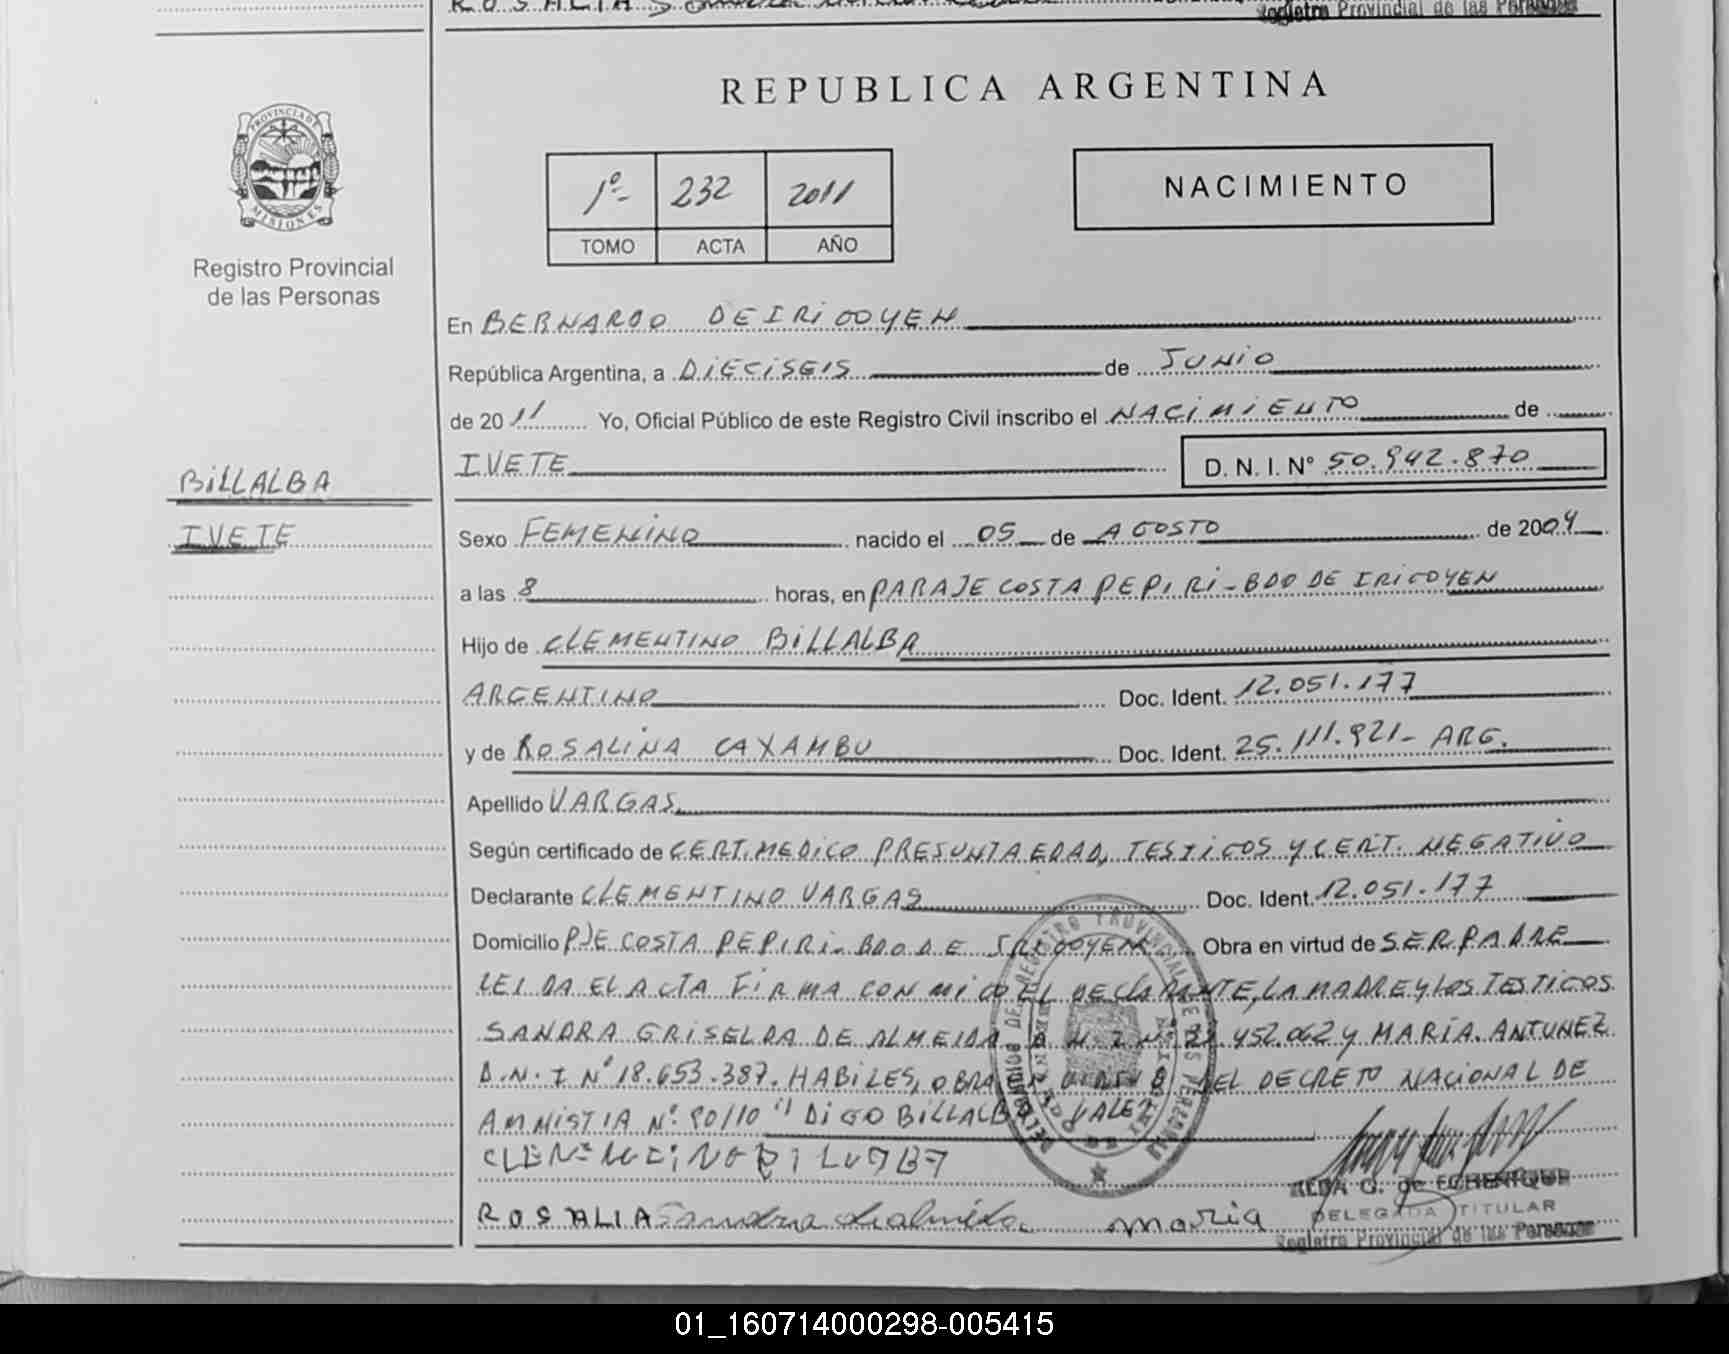 ROSALIA
Registro Provincial de las Personas
REPUBLICA ARGENTINA
PROVINCIA DE
MISIONES
Registro Provincial
de las Personas
1º- 232 2011
TOMO ACTA AÑO
NACIMIENTO
En BERNARDO DE IRIGOYEN
República Argentina, a DIECISEIS de JUNIO
de 2011 Yo, Oficial Público de este Registro Civil inscribo el NACIMIENTO de
IVETE D. N. I. Nº 50.942.870
BILLALBA
IVETE
Sexo FEMENINO nacido el 05 de AGOSTO de 2009
a las 8 horas, en PARAJE COSTA PEPIRI - BDO DE IRIGOYEN
Hijo de CLEMENTINO BILLALBA
ARGENTINO Doc. Ident. 12.051.177
y de ROSALINA CAXAMBU Doc. Ident. 25.111.921- ARG.
Apellido VARGAS
Según certificado de CERT. MEDICO PRESUNTA EDAD, TESTIGOS Y CERT. NEGATIVO
Declarante CLEMENTINO VARGAS Doc. Ident. 12.051.177
Domicilio PJE COSTA PEPIRI - BDO DE IRIGOYEN Obra en virtud de SER PADRE
LEIDA EL ACTA FIRMA CONMIGO EL DECLARANTE, LA MADRE Y LOS TESTIGOS
SANDRA GRISELDA DE ALMEIDA D.N.I Nº 33.452.062 Y MARIA ANTUNEZ
D.N.I Nº 18.653.387. HABILES, OBRA DEL DECRETO NACIONAL DE
AMNISTIA Nº 90/10 " DIGO BILLALBA VALE
ROSALIA Sandra maria
ALBA G. de ECHENIQUE
DELEGADA TITULAR
Registro Provincial de las Personas
01_160714000298-005415